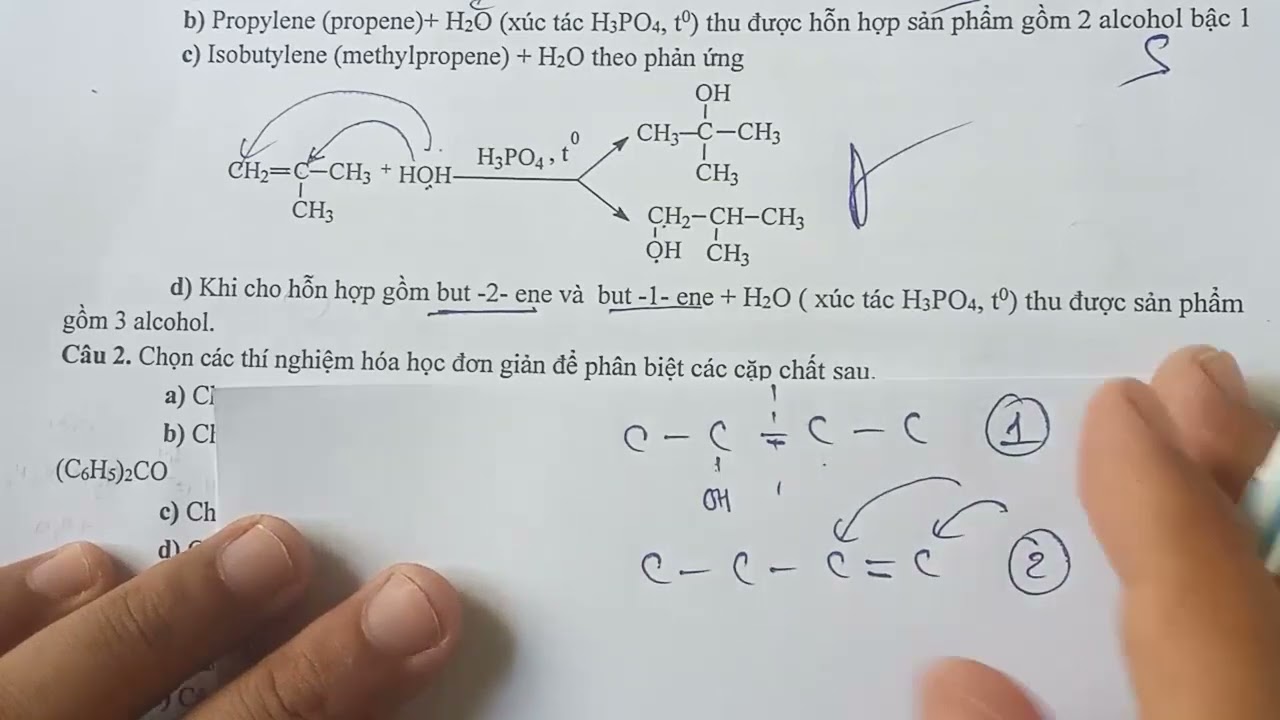 b) Propylene (propene)+ H₂O (xúc tác H₃PO₄, t⁰) thu được hỗn hợp sản phẩm gồm 2 alcohol bậc 1
S
c) Isobutylene (methylpropene) + H₂O theo phản ứng
OH
CH₃–C–CH₃
CH₃
CH₂=C–CH₃ + HOH
CH₃
H₃PO₄, t⁰
CH₂–CH–CH₃
OH CH₃
d) Khi cho hỗn hợp gồm but -2- ene và but -1- ene + H₂O ( xúc tác H₃PO₄, t⁰) thu được sản phẩm
gồm 3 alcohol.
Câu 2. Chọn các thí nghiệm hóa học đơn giản để phân biệt các cặp chất sau.
a)
b)
(C₆H₅)₂CO
c) Ch
d)
C – C = C – C 1
OH
C – C – C = C 2